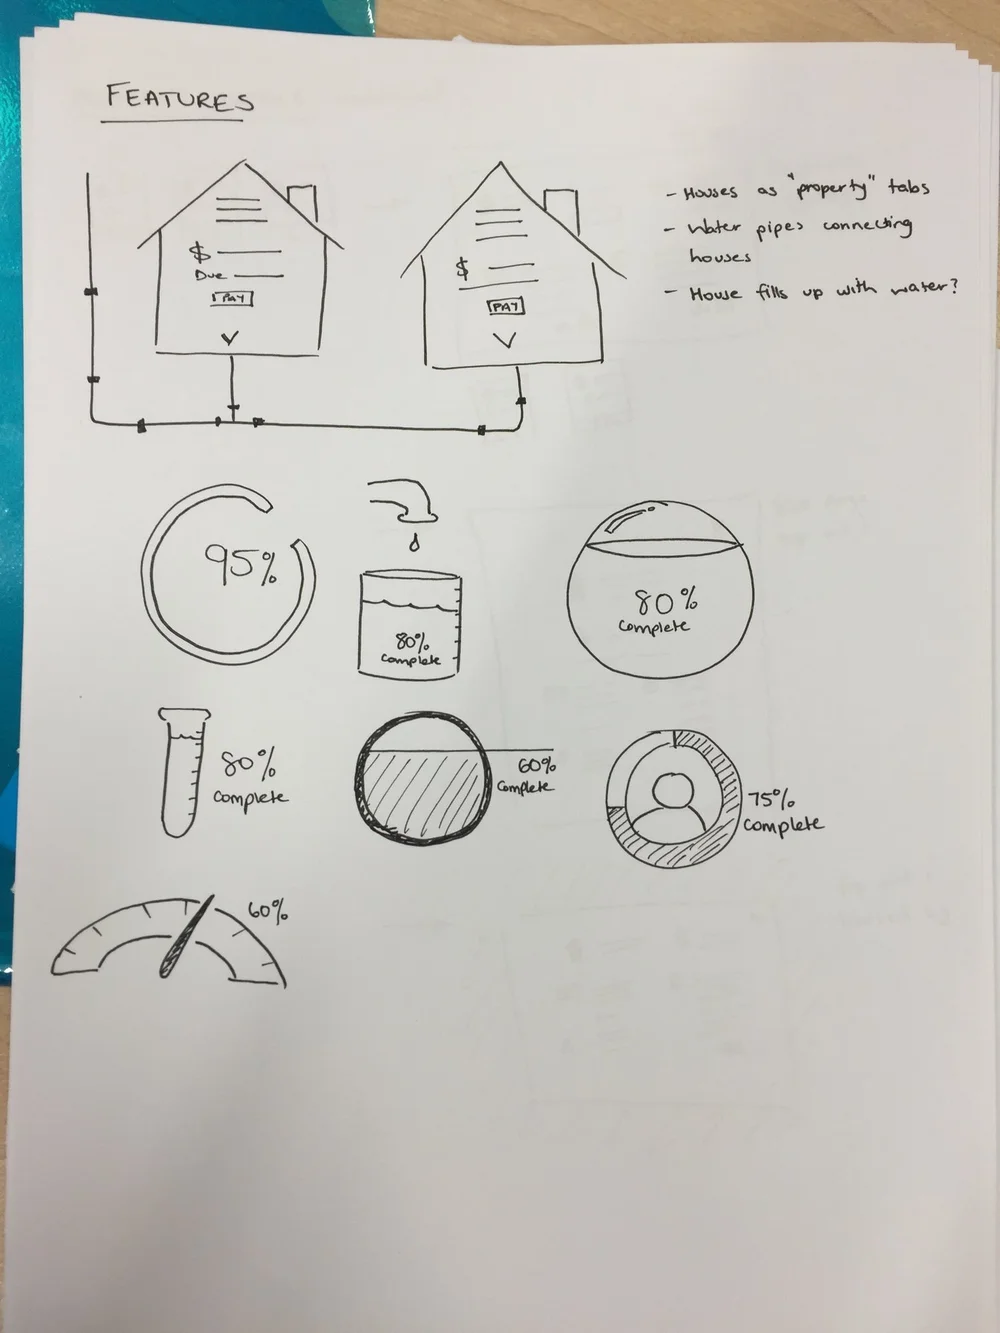 FEATURES
- Houses as "property" tabs
- Water pipes connecting
houses
- House fills up with water?
$
Due
PAY
$
PAY
95%
80%
complete
80%
complete
80%
complete
60%
complete
75%
complete
60%